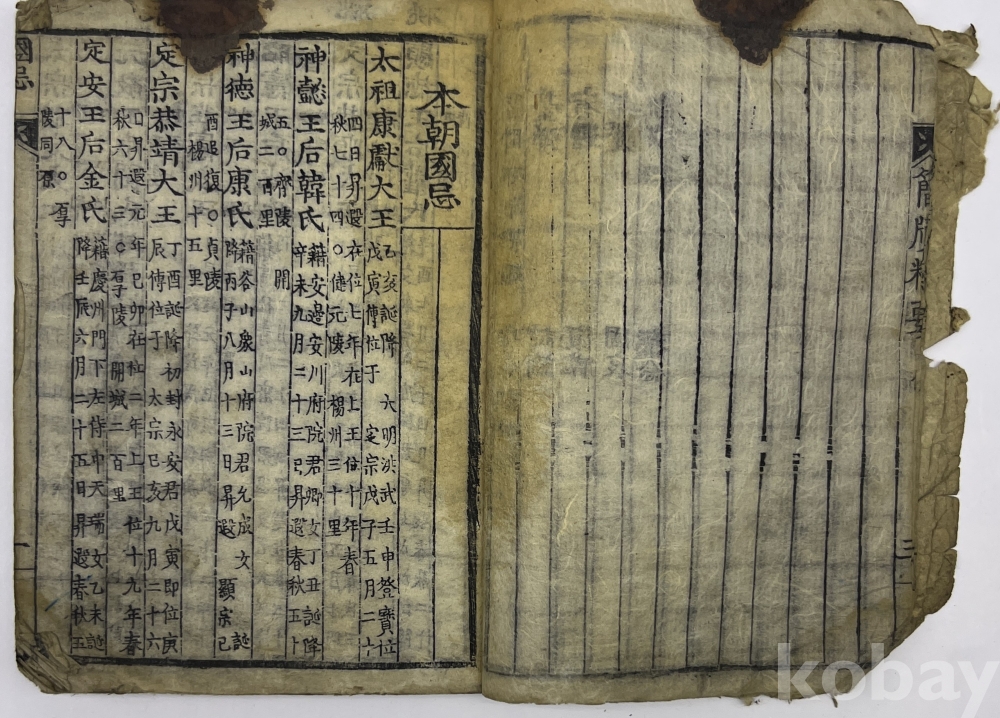 簡牘精要
本朝國忌
太祖康獻大王
乙亥誕降 大明洪武壬申登寶位
戊寅傳位于 定宗戊子五月二十
四日昇遐在位七年在上王位十年春
秋七十四○健元陵楊州三十里
神懿王后韓氏
籍安邊安川府院君卿女丁丑誕降
辛未九月二十三日昇遐春秋五十
五○齊陵 開
城二百里
神德王后康氏
籍谷山象山府院君允成女 誕
降丙子八月十三日昇遐 顯宗己
酉追復○貞陵
楊州十五里
定宗恭靖大王
丁酉誕降初封永安君戊寅即位庚
辰傳位于 太宗己亥九月二十六
日昇遐元年己卯在位二年上王位十九年春
秋六十三○厚陵 開城二百里
定安王后金氏
籍慶州門下左侍中天瑞女乙未誕
降壬辰六月二十五日昇遐春秋五
十八○ 厚
陵同原
國忌
kobay